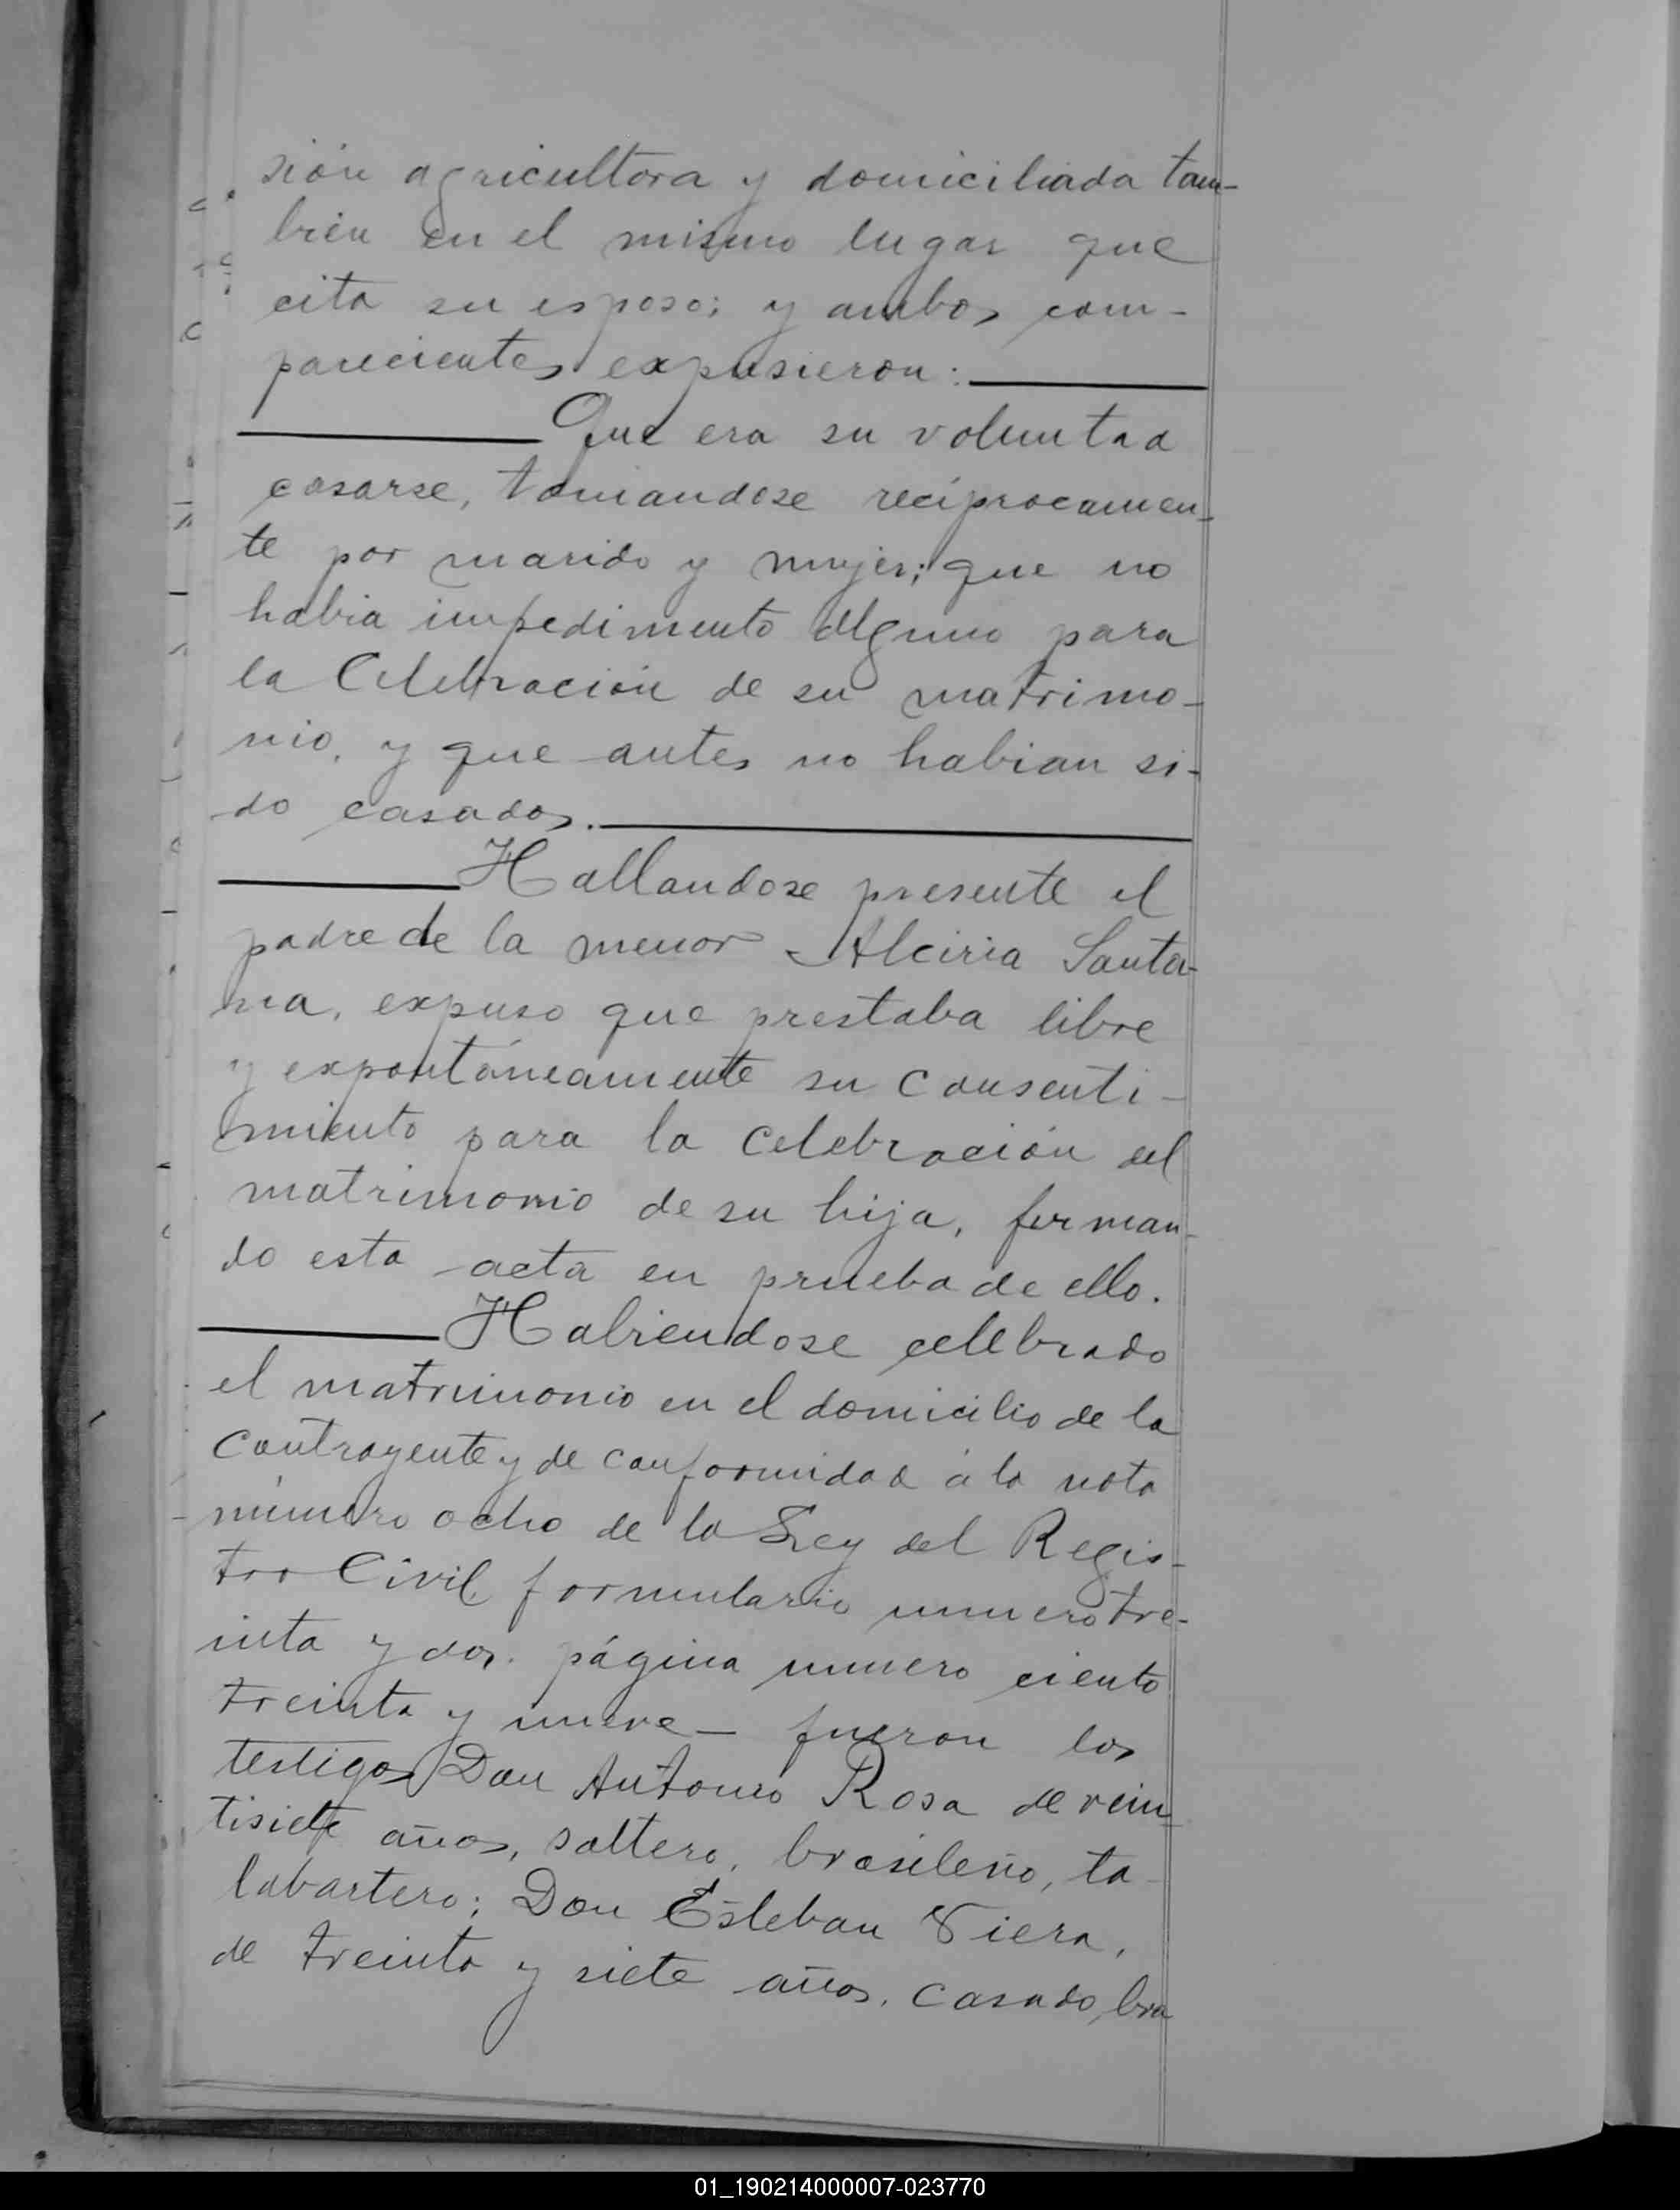 sión agricultora y domiciliada tam-
bien en el mismo lugar que
cita su esposo; y ambos com-
parecientes expusieron:
Que era su voluntad
casarse, tomandose recíprocamen-
te por marido y mujer; que no
habia impedimento alguno para
la Celebración de su matrimo-
nio, y que antes no habian si-
do casados.
Hallandose presente el
padre de la menor Alciria Santa-
na, expuso que prestaba libre
y expontáneamente su consenti-
miento para la celebración del
matrimonio de su hija, firman-
do esta acta en prueba de ello.
Habiendose celebrado
el matrimonio en el domicilio de la
contrayente y de conformidad á la nota
número ocho de la Ley del Regis-
tro Civil, formulario numero tre-
inta y dos. página numero ciento
treinta y nueve— fueron los
testigos Don Antonio Rosa de vein
tisiete años, soltero, brasileño, ta-
labartero; Don Esteban Viera,
de treinta y siete años, casado, bra
01_190214000007-023770